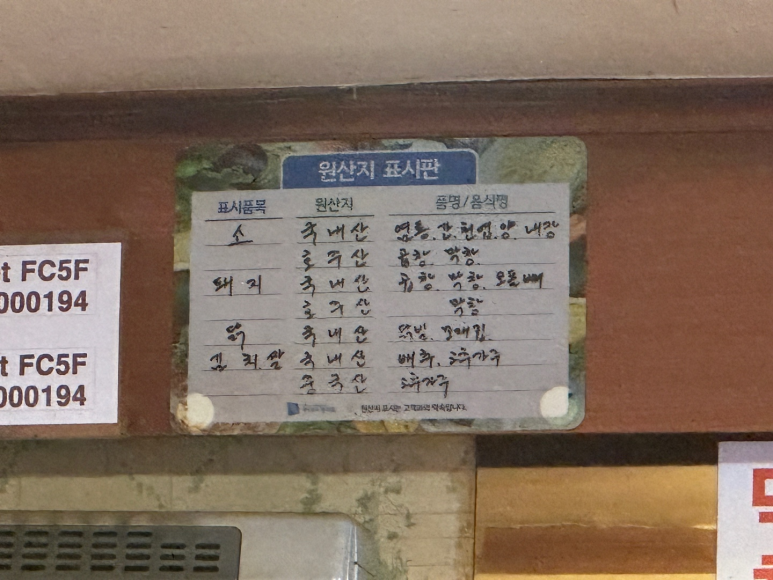 원산지 표시판
표시품목 원산지 품명/음식명
소 국내산 염통, 간, 천엽, 양, 내장
호주산 곱창, 막창
돼지 국내산 곱창, 막창, 오돌뼈
호주산 막창
닭 국내산
김치,쌀 국내산 배추, 고추가루
중국산 고추가루
원산지 표시는 고객과의 약속입니다.
t FC5F
000194
t FC5F
000194